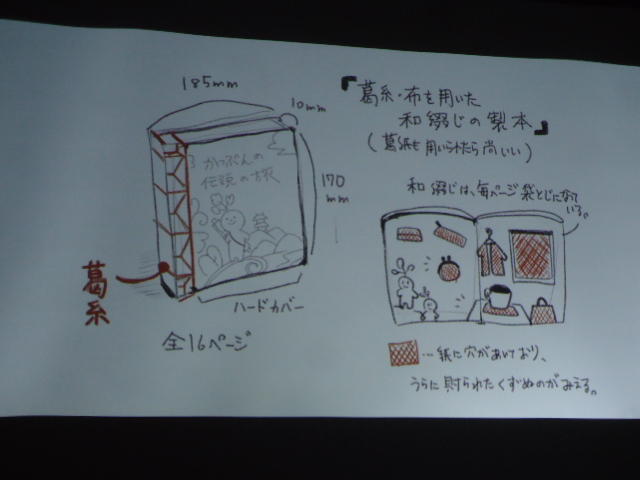 『葛糸・布を用いた
和綴じの製本』
(葛紙も用いられたら尚いい)
185mm
10mm
170
mm
かっぷんの
伝説の旅
葛糸
ハードカバー
全16ページ
和綴じは、毎ページ袋とじになっている。
…紙に穴があいており、
うらに貼られたくずぬのがみえる。